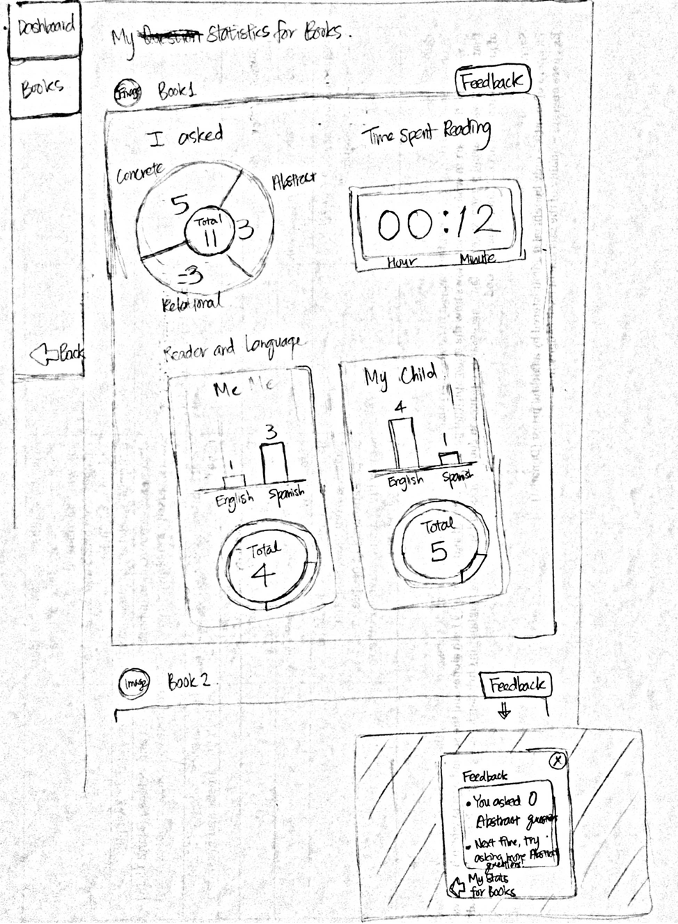 Dashboard
Books
Back
My Statistics for Books.
Image Book 1
Feedback
I asked
Concrete
Abstract
5
Total
11
3
3
Relational
Time Spent Reading
00:12
Hour Minute
Reader and Language
Me Me
1
3
English Spanish
Total
4
My Child
4
1
English Spanish
Total
5
Image Book 2
Feedback
X
Feedback
• You asked 0
Abstract questions
• Next time, try
asking more Abstract
questions!
My Stats
for Books